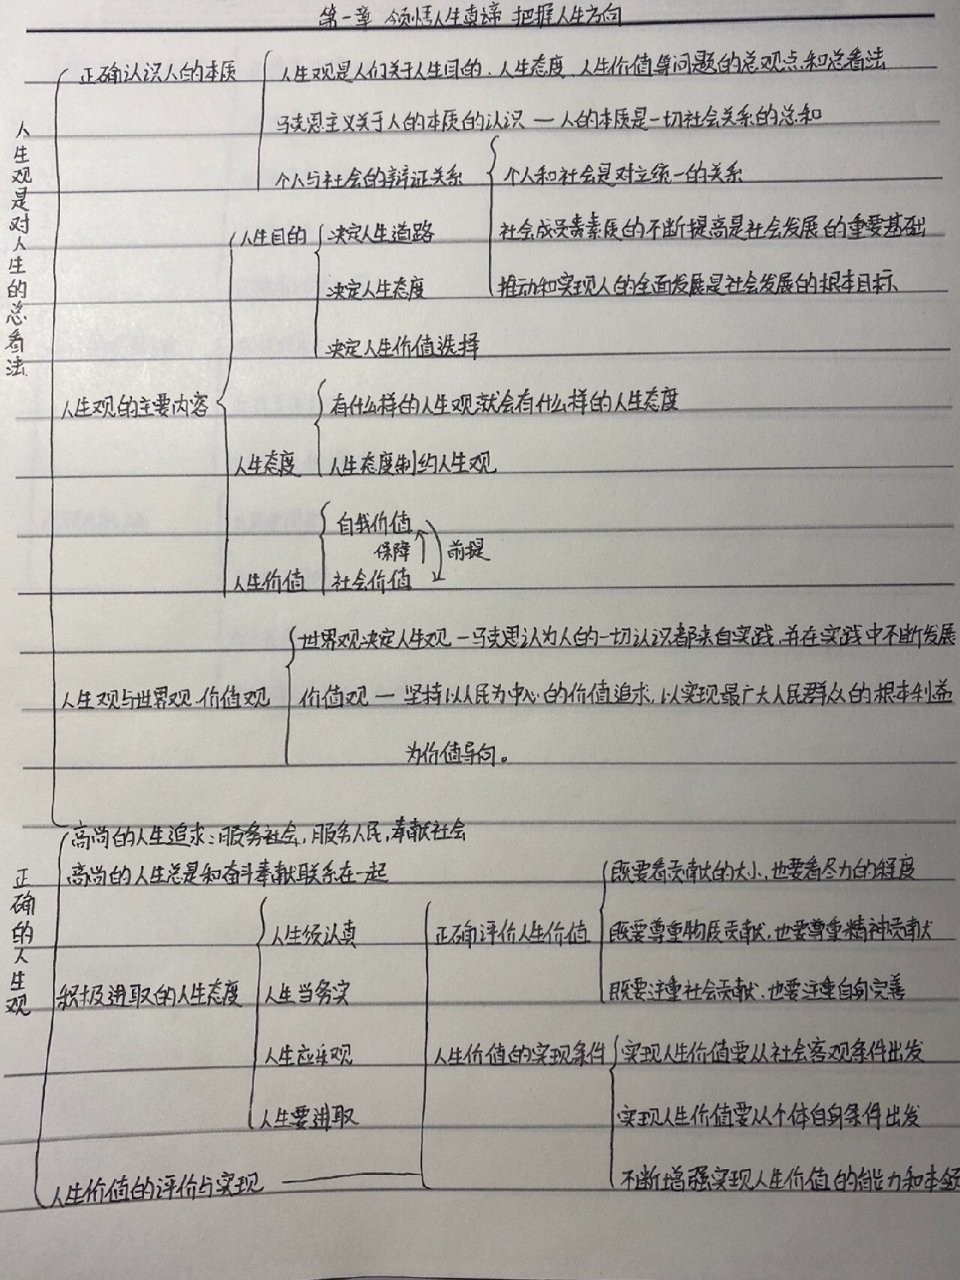 第一章 领悟人生真谛 把握人生方向
人生观是对人生的总看法
正确认识人的本质
人生观是人们关于人生目的、人生态度、人生价值等问题的总观点和总看法
马克思主义关于人的本质的认识 — 人的本质是一切社会关系的总和
个人与社会的辩证关系
个人和社会是对立统一的关系
社会成员素质的不断提高是社会发展的重要基础
推动和实现人的全面发展是社会发展的根本目标
人生观的主要内容
人生目的
决定人生道路
决定人生态度
决定人生价值选择
人生态度
有什么样的人生观就会有什么样的人生态度
人生态度制约人生观
人生价值
自我价值
保障 前提
社会价值
人生观与世界观、价值观
世界观决定人生观 — 马克思认为人的一切认识都来自实践,并在实践中不断发展
价值观 — 坚持以人民为中心的价值追求,以实现最广大人民群众的根本利益
为价值导向。
正确的人生观
高尚的人生追求:服务社会,服务人民,奉献社会
高尚的人生总是和奋斗奉献联系在一起
积极进取的人生态度
人生须认真
人生当务实
人生应乐观
人生要进取
人生价值的评价与实现
正确评价人生价值
既要看贡献的大小,也要看尽力的程度
既要尊重物质贡献,也要尊重精神贡献
既要注重社会贡献,也要注重自身完善
人生价值的实现条件
实现人生价值要从社会客观条件出发
实现人生价值要从个体自身条件出发
不断增强实现人生价值的能力和本领